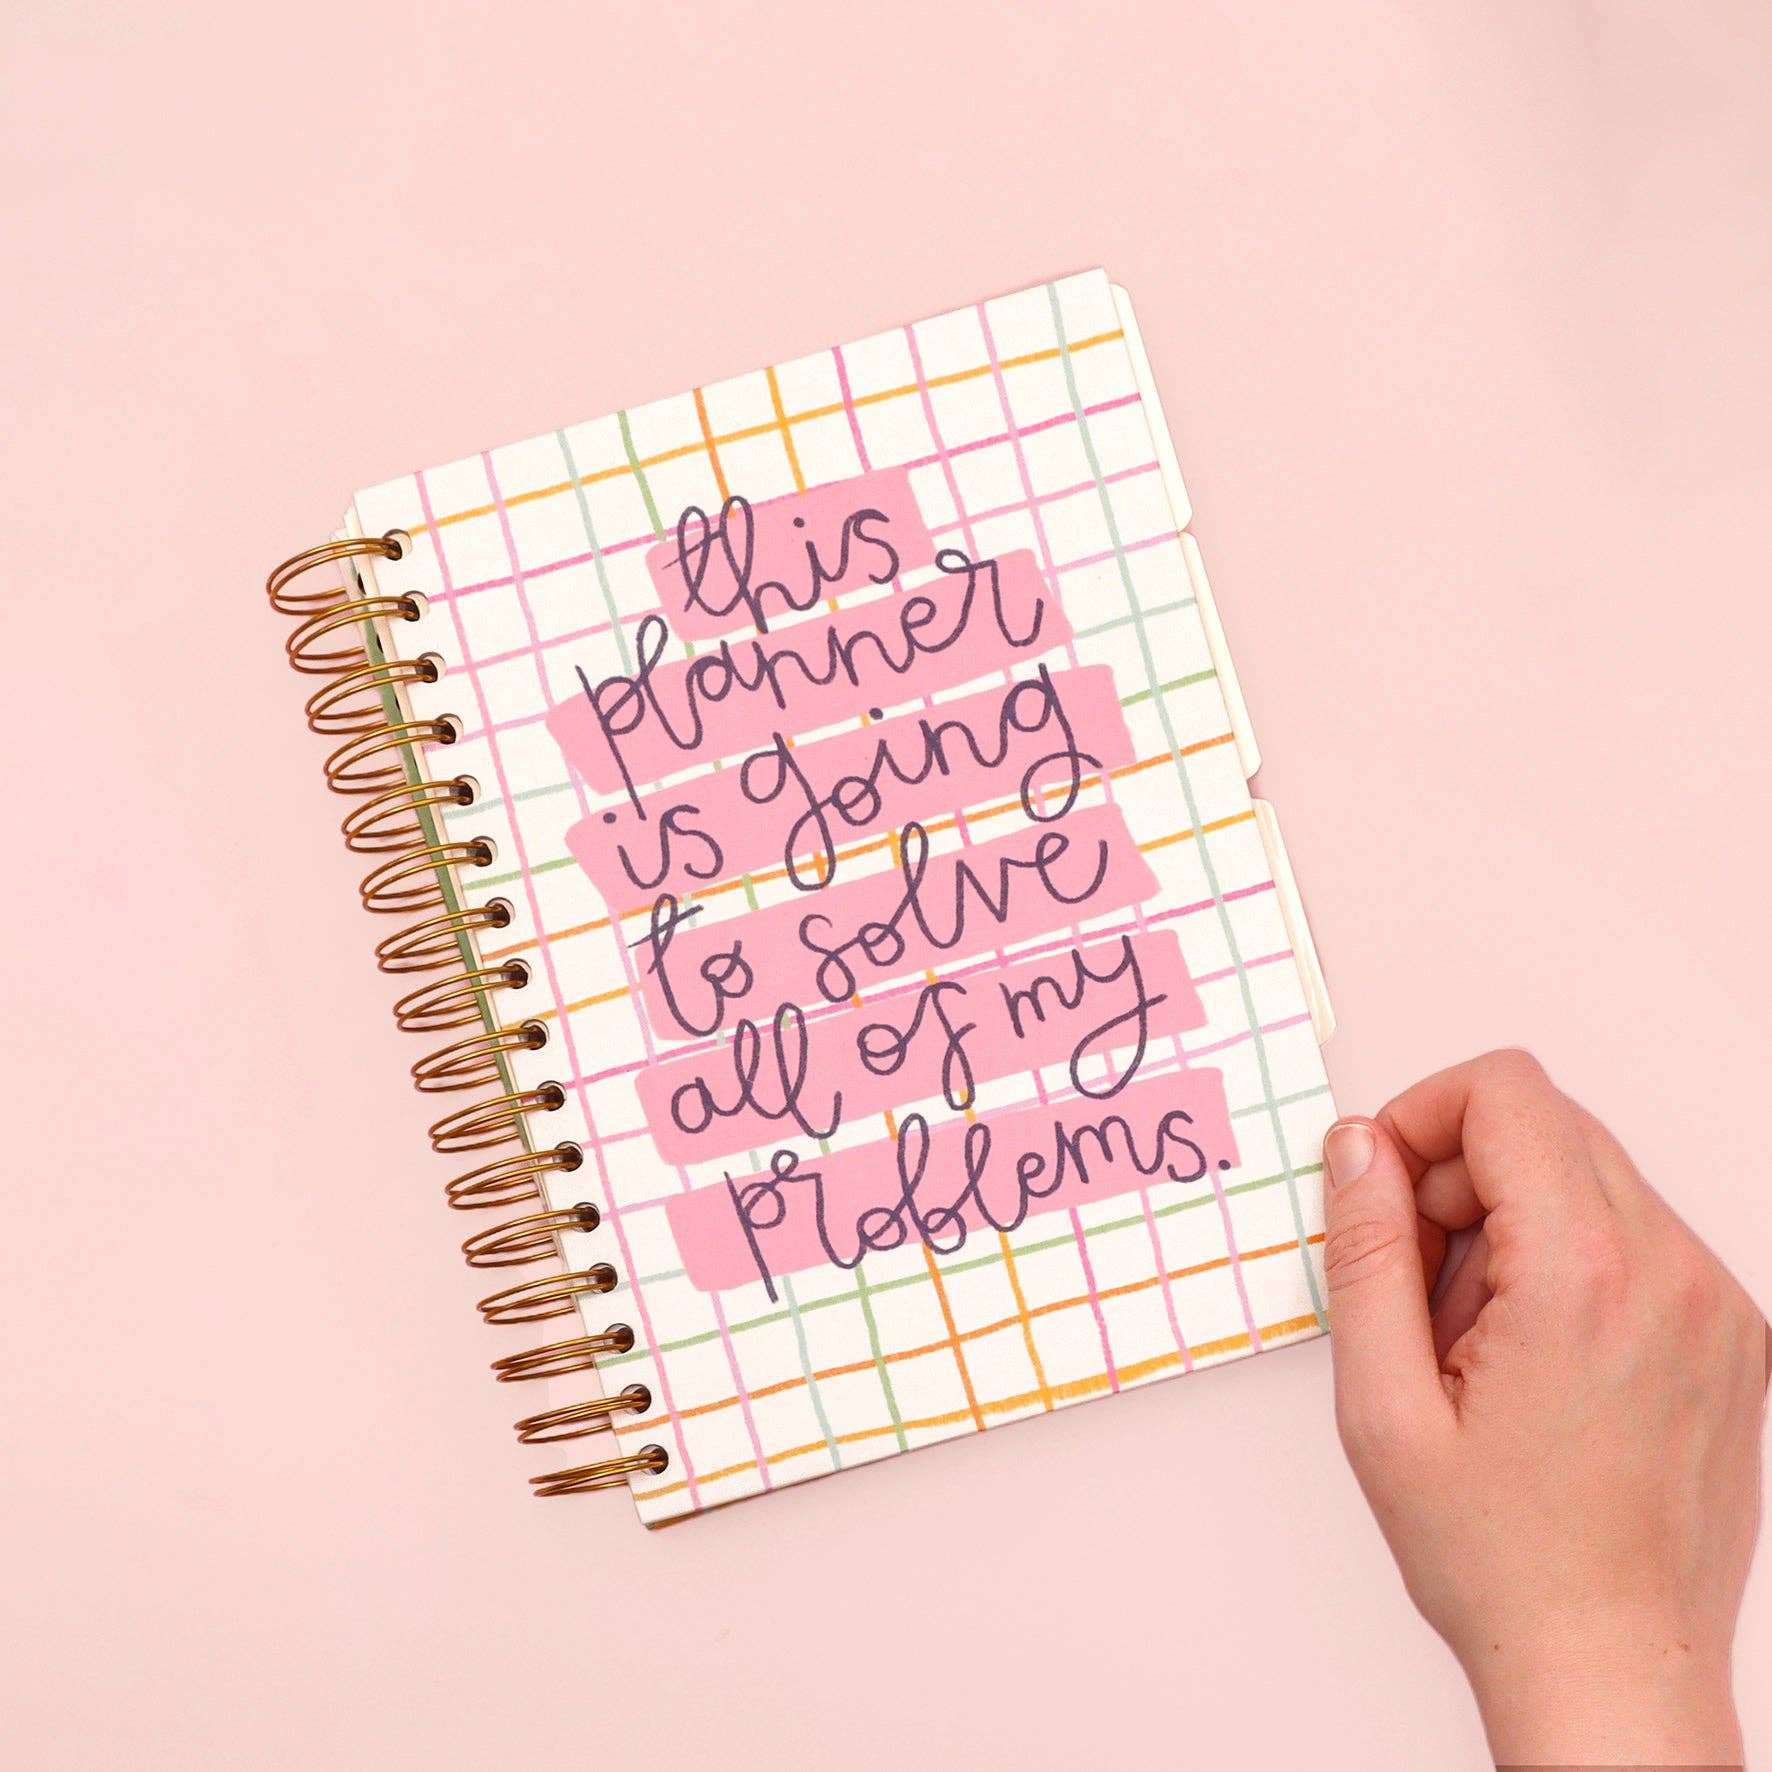 this
planner
is going
to solve
all of my
problems.